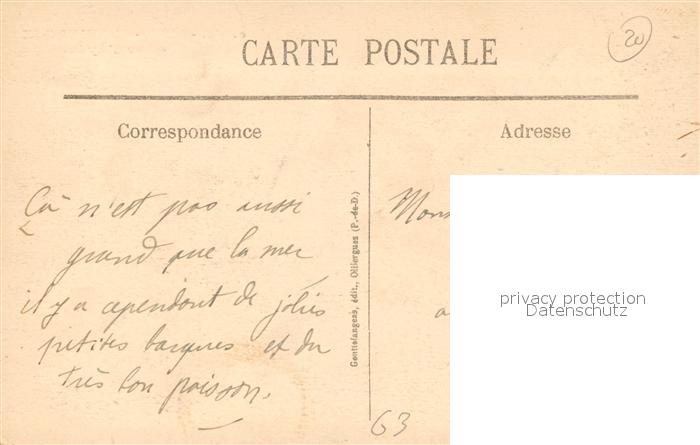 20
CARTE POSTALE
Correspondance
Adresse
Çà n'est pas aussi
grand que la mer
il y a cependant de jolies
petites barques et du
très bon poisson.
Gontielangeas, édit., Olliergues (P.-de-D.)
Mons
a
privacy protection
Datenschutz
63